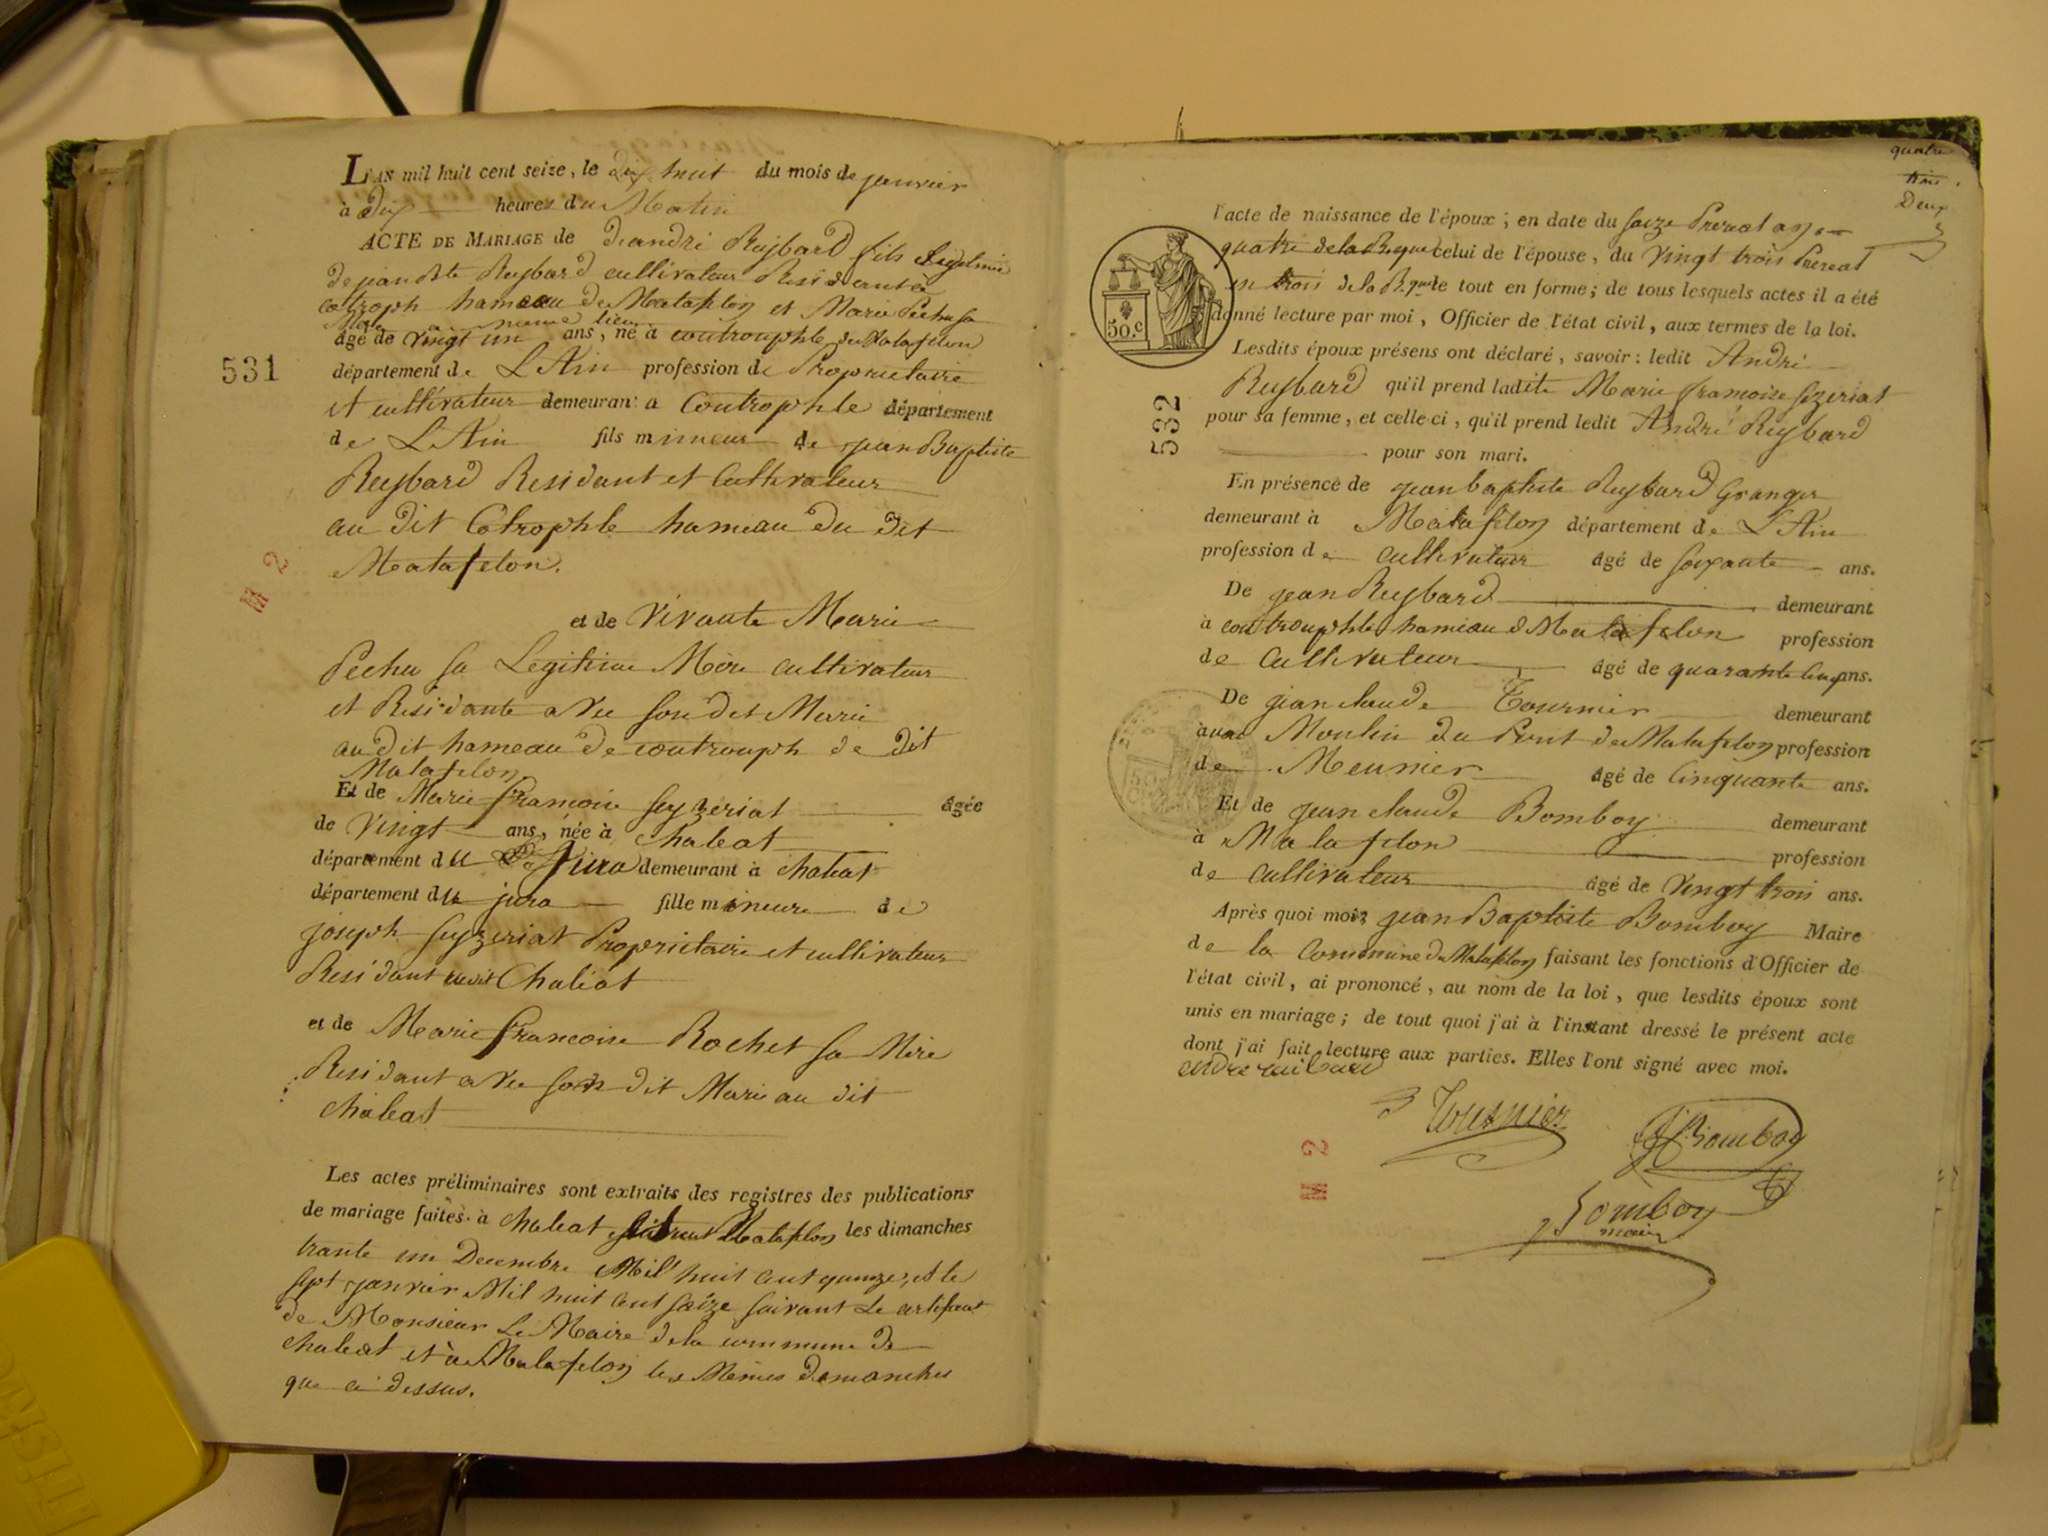 L'AN mil huit cent seize, le dix huit du mois de janvier
à dix heures du Matin
ACTE DE MARIAGE de d'andré Reybard fils Legitime
de jean Bte Reybard cultivateur Residant a
cotroph hameau de Matafelon et Marie Pechu sa
Mere même lieu
âgé de vingt un ans, né à coutrouphle de Matafelon
531
département de L'Ain profession de Proprietaire
et cultivateur demeurant à Coutrophle département
de L'Ain fils mineur de jean Baptiste
Reybard Residant et Cultivateur
au dit Cotrophle hameau du dit
Matafelon.
M 2
et de vivante Marie
Pechu sa Legitime Mère cultivateur
et Residante avec son dit Marie
au dit hameau de coutrouph de dit
Matafelon
Et de Marie françoise seyzeriat âgée
de vingt ans, née à Chaleat
département du Jura demeurant à chaleat
département du jura fille mineure de
joseph seyzeriat Proprietaire et cultivateur
Residant audit Chaleat
et de Marie françoise Rochet sa Mère
Residant avec son dit Marie au dit
chaleat
Les actes préliminaires sont extraits des registres des publications
de mariage faites à chaleat Matafelon les dimanches
trante un Decembre Mil huit cent quinze, et le
sept janvier Mil huit cent seize suivant Le certificat
de Monsieur Le Maire de la commune de
chaleat et à Matafelon les Mêmes dimanches
que ci dessus.
quatre
trois
Deux
50.c
l'acte de naissance de l'époux; en date du seize Prereal an
quatre de la Repque celui de l'épouse, du vingt trois Prereal
an trois de la Rque le tout en forme; de tous lesquels actes il a été
donné lecture par moi, Officier de l'état civil, aux termes de la loi.
Lesdits époux présens ont déclaré, savoir: ledit André
532
Reybard qu'il prend ladite Marie françoise sezeriat
pour sa femme, et celle ci, qu'il prend ledit André Reybard
pour son mari.
En présence de jean baptiste Reybard Granger
demeurant à Matafelon département de L'Ain
profession de cultivateur âgé de soixante ans.
De jean Reybard demeurant
à coutrouphle hameau d Matafelon profession
de Cultivateur âgé de quarante cinq ans.
De jean claude Tournier demeurant
à au Moulin du Pont de Matafelon profession
de Meunier âgé de Cinquante ans.
Et de jean claude Bomboy demeurant
à Matafelon profession
de cultivateur âgé de vingt trois ans.
Après quoi moi, jean Baptiste Bomboy Maire
de la Commune de Matafelon faisant les fonctions d'Officier de
l'état civil, ai prononcé, au nom de la loi, que lesdits époux sont
unis en mariage; de tout quoi j'ai à l'instant dressé le présent acte
dont j'ai fait lecture aux parties. Elles l'ont signé avec moi.
andre raibard
Tournier
Bomboy
Bomboy
maire
M 2